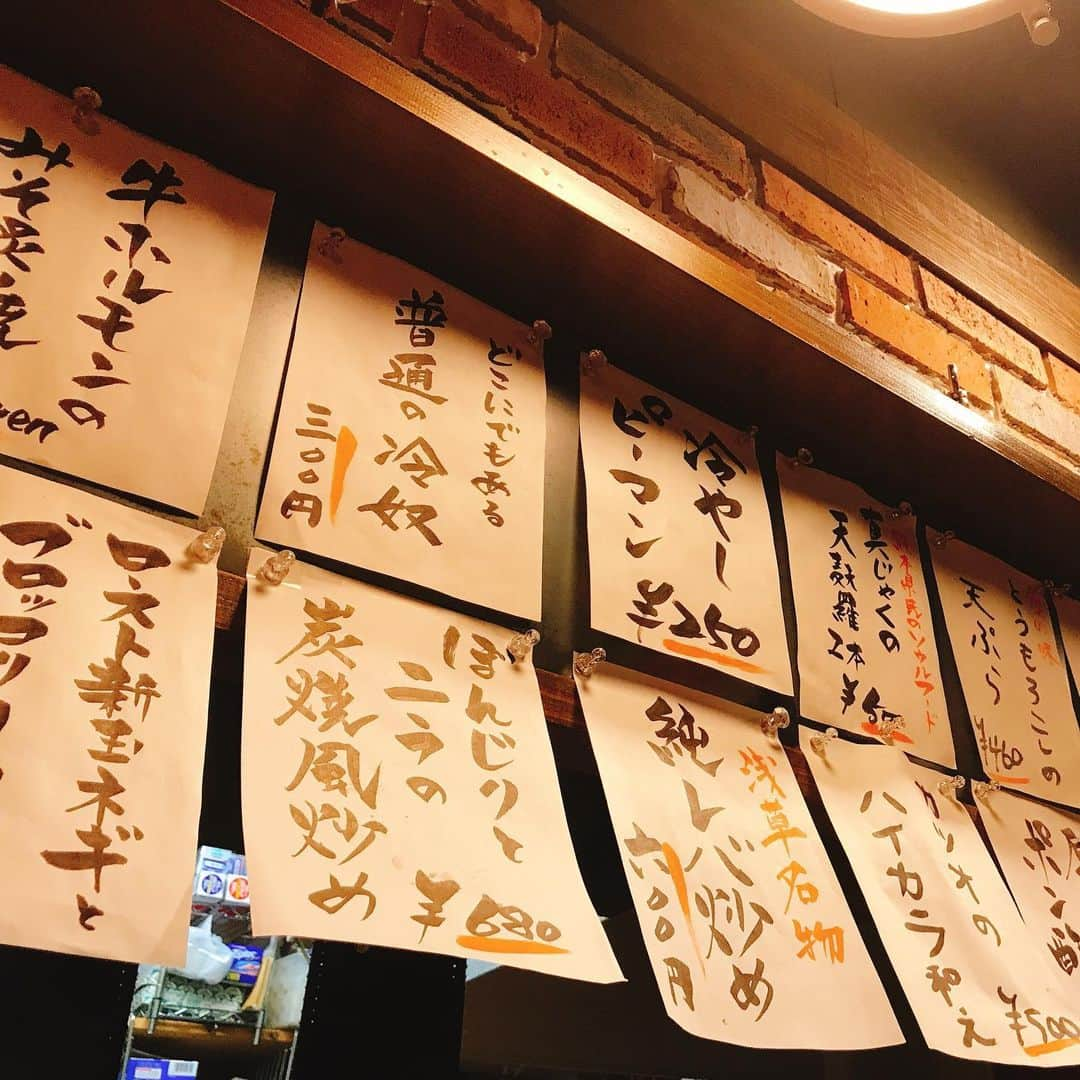 牛ホルモンの
みそ炭焼
どこにでもある
普通の冷奴
三〇〇円
冷やし
ピーマン
¥250
県民のソウルフード
真じゃくの
天麩羅2本
とうもろこしの
天ぷら
¥460
ロースト新玉ネギと
ブロッコリー
ぼんじりと
ニラの
炭焼風炒め
¥680
浅草名物
純レバ炒め
六〇〇円
カツオの
ハイカラ和え
¥500
ポン酢